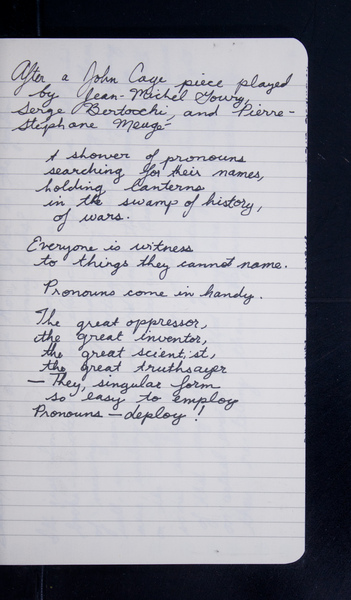 After a John Cage piece played
by Jean-Michel Goury,
Serge Bertocchi, and Pierre-
Stéphane Meugé
A shower of pronouns
searching for their names,
holding lanterns
in the swamp of history,
of wars.
Everyone is witness
to things they cannot name.
Pronouns come in handy.
The great oppressor,
the great inventor,
the great scientist,
the great truthsayer
— They, singular form
so easy to employ
Pronouns — deploy!